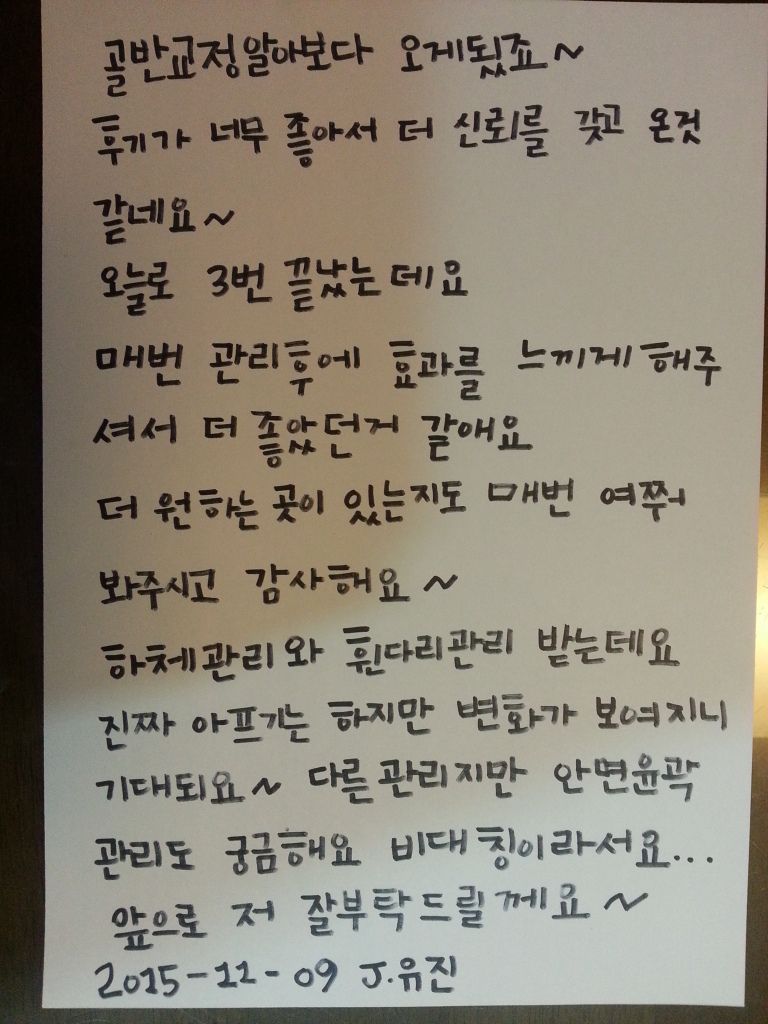 골반교정알아보다 오게됬죠~
후기가 너무 좋아서 더 신뢰를 갖고 온것
같네요~
오늘로 3번 끝났는데요
매번 관리후에 효과를 느끼게해주
셔서 더 좋았던거 같애요
더 원하는 곳이 있는지도 매번 여쭤
봐주시고 감사해요~
하체관리와 휜다리관리 받는데요
진짜 아프기는 하지만 변화가 보여지니
기대되요~ 다른관리지만 안면윤곽
관리도 궁금해요 비대칭이라서요...
앞으로 저 잘부탁드릴께요~
2015-11-09 J.유진